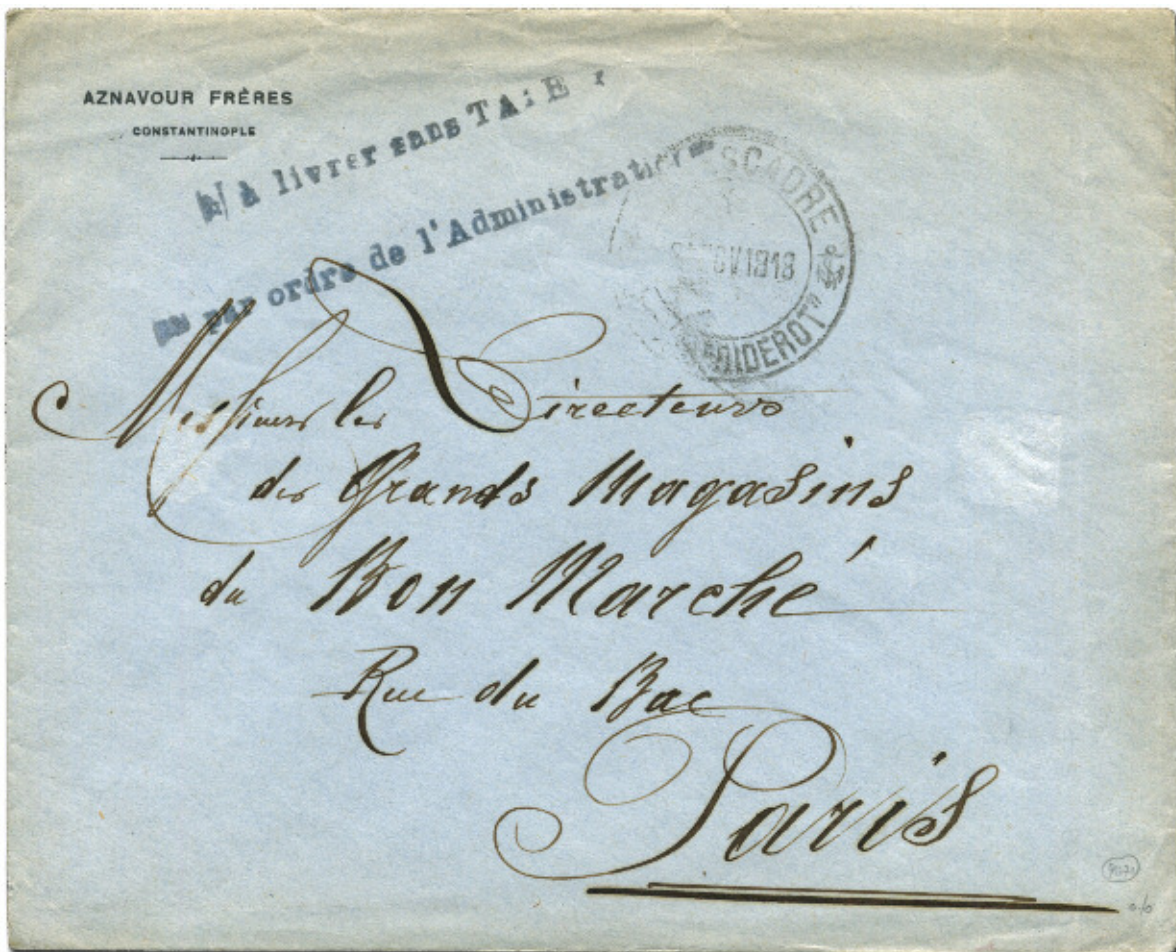 AZNAVOUR FRÈRES
CONSTANTINOPLE
à livrer sans
par ordre de l'Administration
ESCADRE
NOV 1918
"DIDEROT"
Messieurs les Directeurs
des Grands Magasins
du Bon Marché
Rue du Bac
Paris